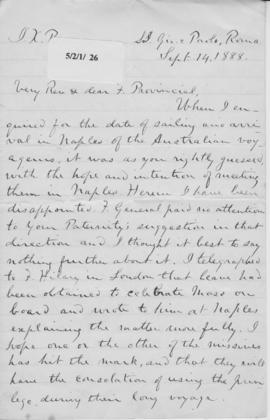 I X P
SS. Gio. e Paolo, Roma
5/2/1/ 26
Sept. 14, 1888.
Very Rev & dear F. Provincial,
When I en-
quired for the date of sailing and arri-
val in Naples of the Australian voy-
agers, it was as you rightly guessed,
with the hope and intention of meeting
them in Naples. Herein I have been
disappointed. F. General paid no attention
to your Paternity's suggestion in that
direction and I thought it best to say
nothing further about it. I telegraphed
to F. Hilary in London that leave had
been obtained to celebrate Mass on
board and wrote to him at Naples
explaining the matter more fully. I
hope one or the other of the missives
has hit the mark, and that they will
have the consolation of using the privi-
lege during their long voyage.